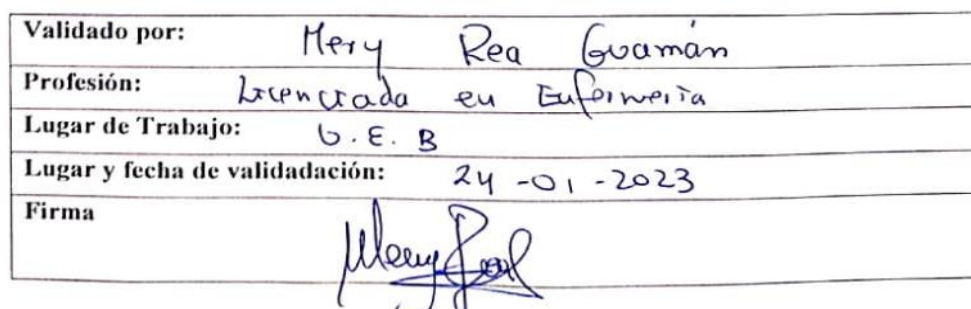 Validado por: Mery Rea Guamán
Profesión: Licenciada en Enfermería
Lugar de Trabajo: U. E. B
Lugar y fecha de validadación: 24 -01 -2023
Firma